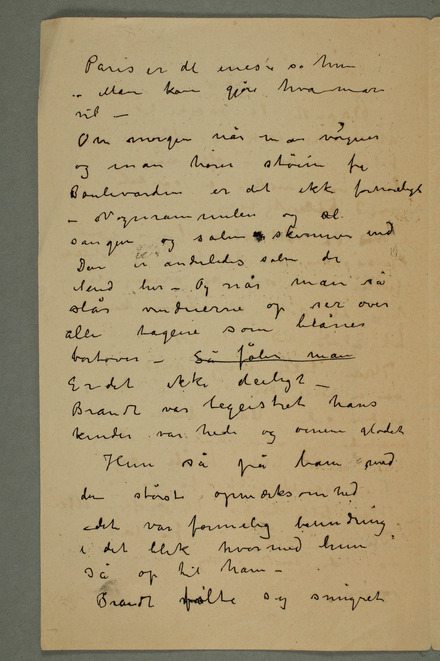 Paris er det eneste sa hun
„ Man kan gjøre hva man
vil —
Om morgen når man vågner
og man hører støien fra
Boulevarden er det ikke
— Vognrammelen og
sangen og solen skinner ind
Den er anderledes solen de
end her — Og når man så
slår vinduerne op og ser over
alle tagene som blånes
bortover — Så føler man
Er det ikke deiligt —
Brandt var begeistret hans
kinder var hede og øinene glødet
Hun så på ham med
den største opmærksomhed
det var formelig beundring
i det blik hvormed hun
så op til ham —
Brandt følte sig smigret